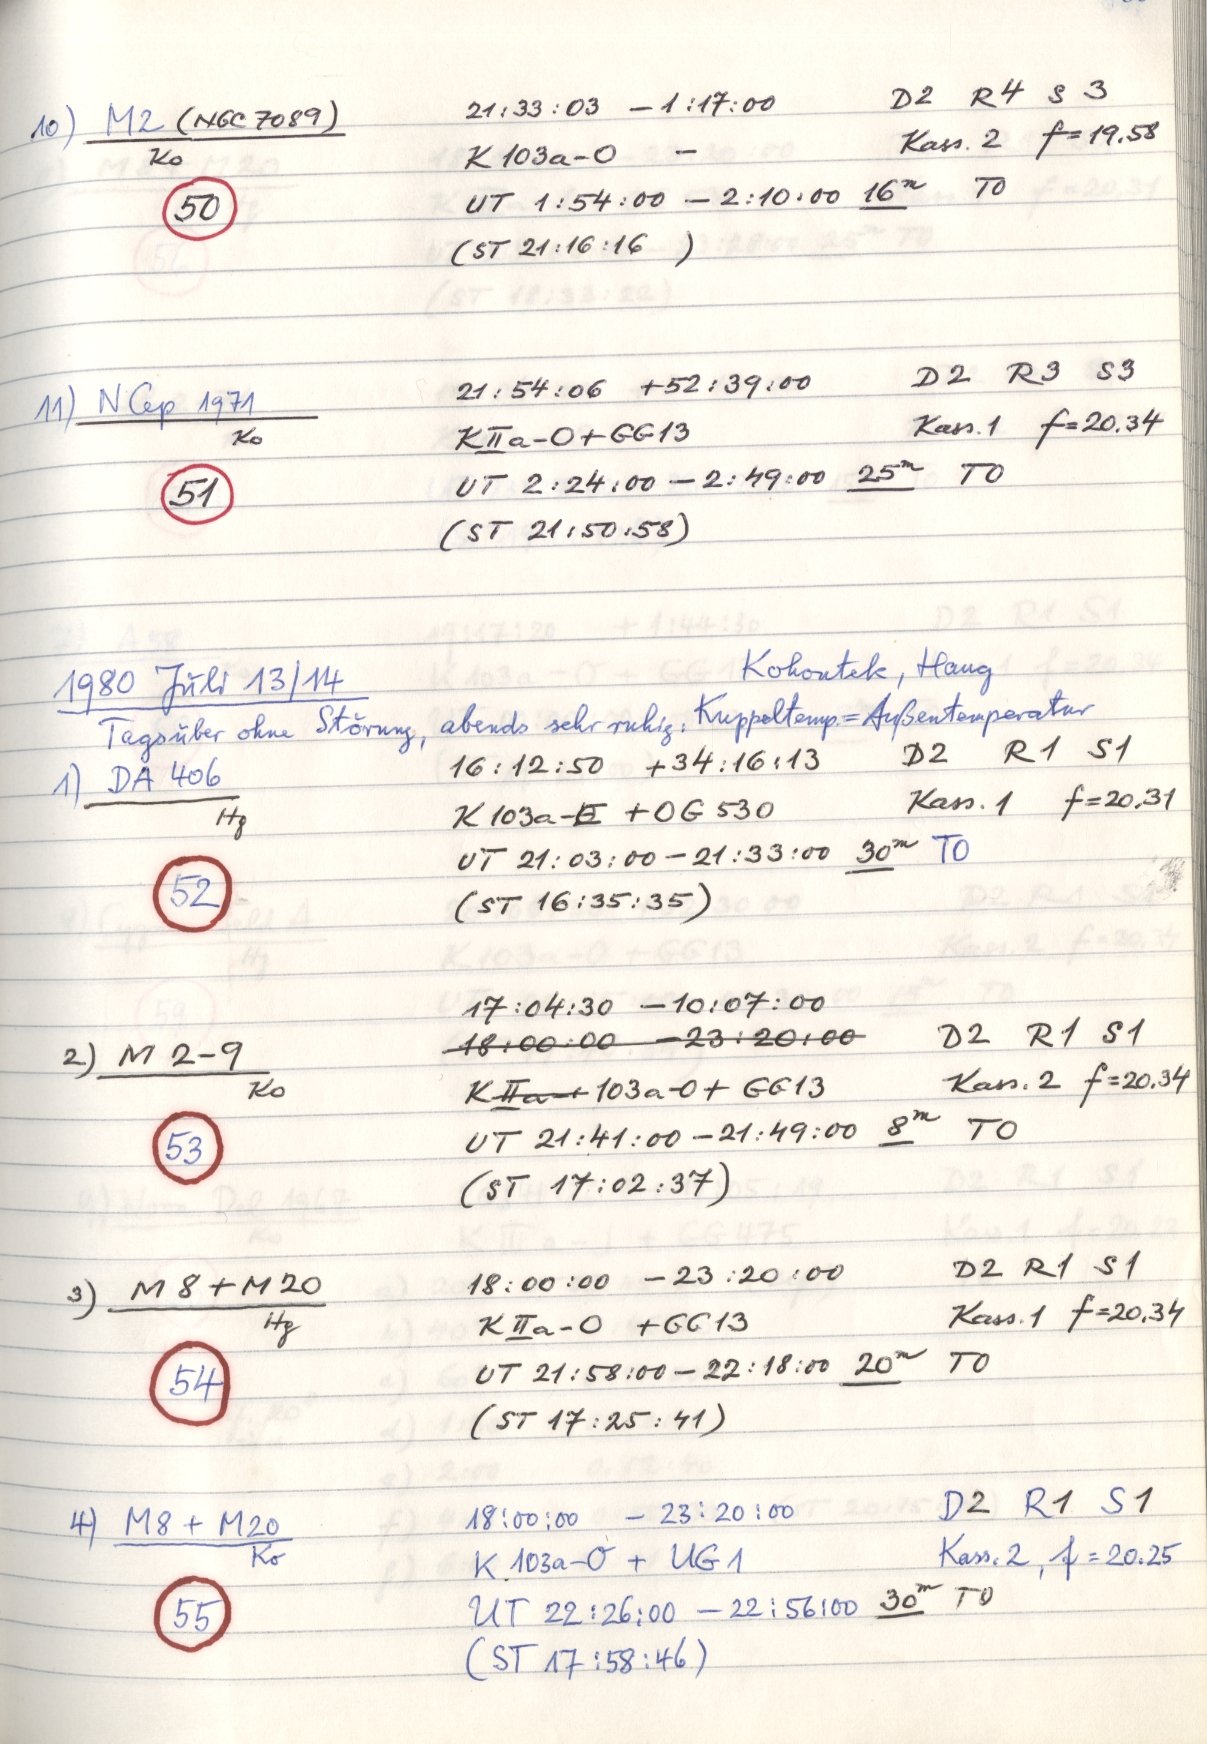 10) M2 (NGC 7089) 21:33:03 -1:17:00 D2 R4 S3
Ko K 103a-O - Kass. 2 f=19.58
50 UT 1:54:00 - 2:10:00 16m TO
(ST 21:16:16 )
11) N Cep 1971 21:54:06 +52:39:00 D2 R3 S3
Ko K IIa-O + GG13 Kass. 1 f=20.34
51 UT 2:24:00 - 2:49:00 25m TO
(ST 21:50:58)
1980 Juli 13/14 Kohoutek, Haug
Tagsüber ohne Störung, abends sehr ruhig. Kuppeltemp. = Außentemperatur
1) DA 406 16:12:50 +34:16:13 D2 R1 S1
Hg K 103a-E + OG 530 Kass. 1 f=20.31
52 UT 21:03:00 - 21:33:00 30m TO
(ST 16:35:35)
17:04:30 -10:07:00
2) M 2-9 18:00:00 -23:20:00 D2 R1 S1
Ko K IIa-+ 103a-O + GG13 Kass. 2 f=20.34
53 UT 21:41:00 - 21:49:00 8m TO
(ST 17:02:37)
3) M 8 + M 20 18:00:00 -23:20:00 D2 R1 S1
Hg K IIa-O + GG13 Kass. 1 f=20.34
54 UT 21:58:00 - 22:18:00 20m TO
(ST 17:25:41)
4) M8 + M20 18:00:00 -23:20:00 D2 R1 S1
Ko K 103a-O + UG1 Kass. 2, f=20.25
55 UT 22:26:00 - 22:56:00 30m TO
(ST 17:58:46)